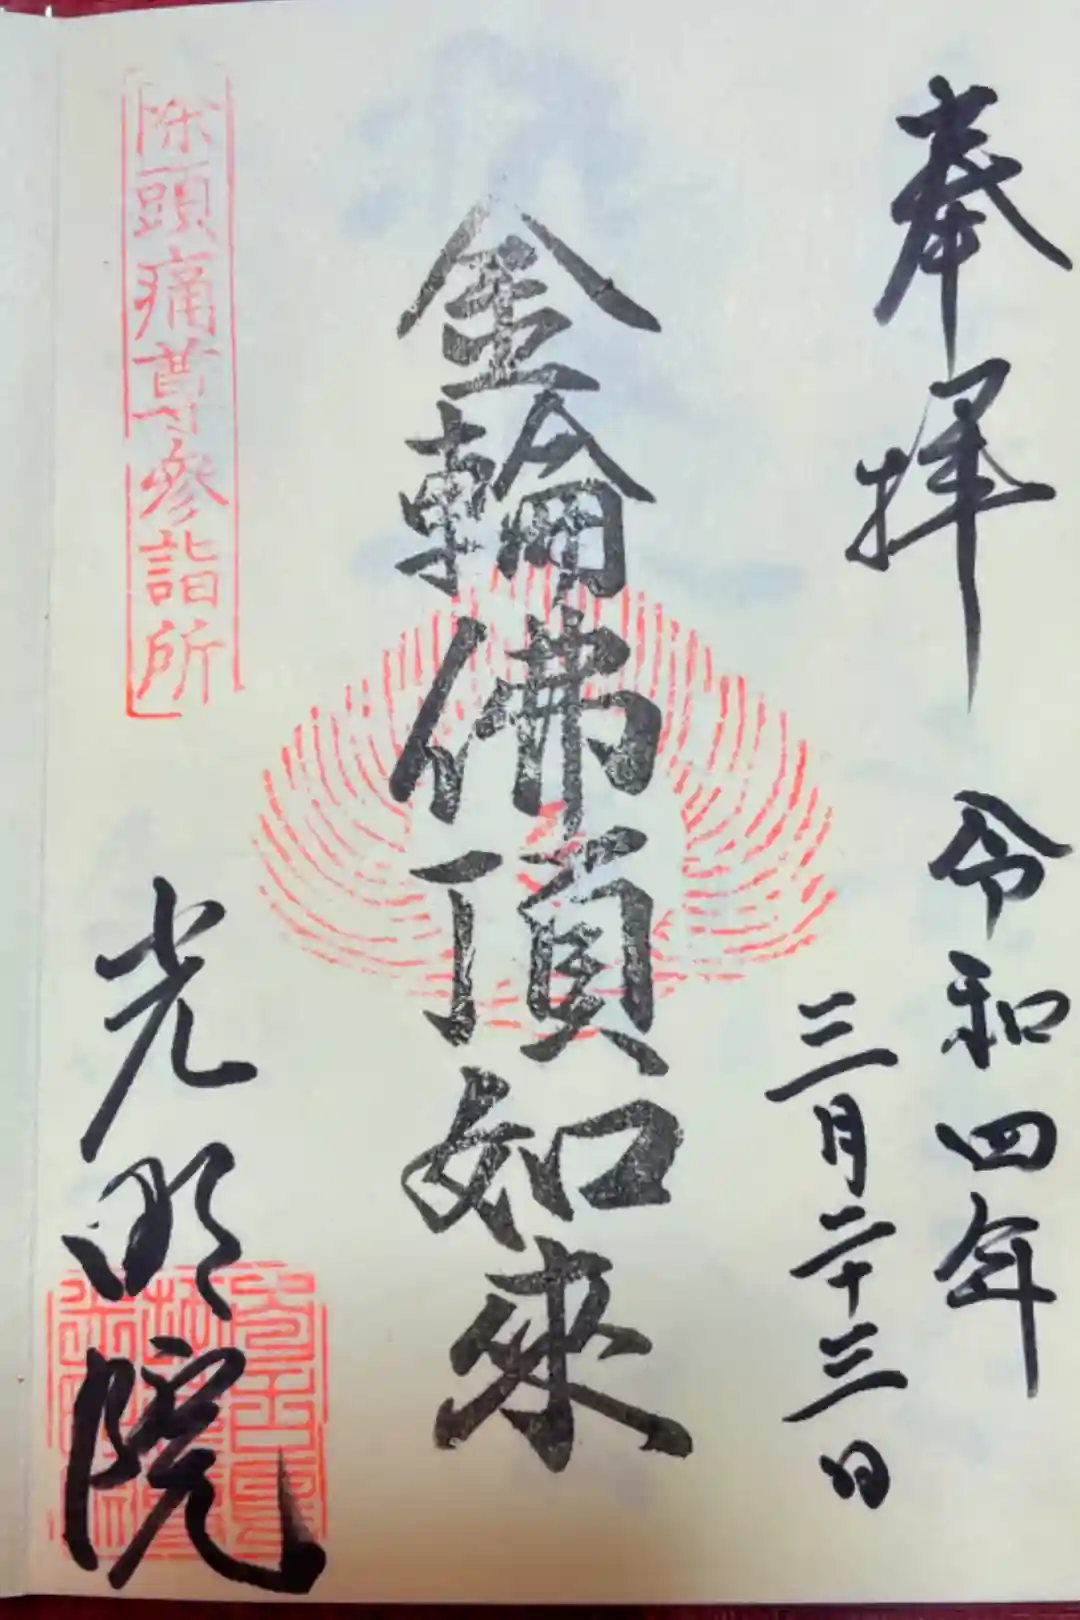 奉拝
令和四年
三月二十三日
金輪佛頂如來
除頭痛尊參詣所
光明院